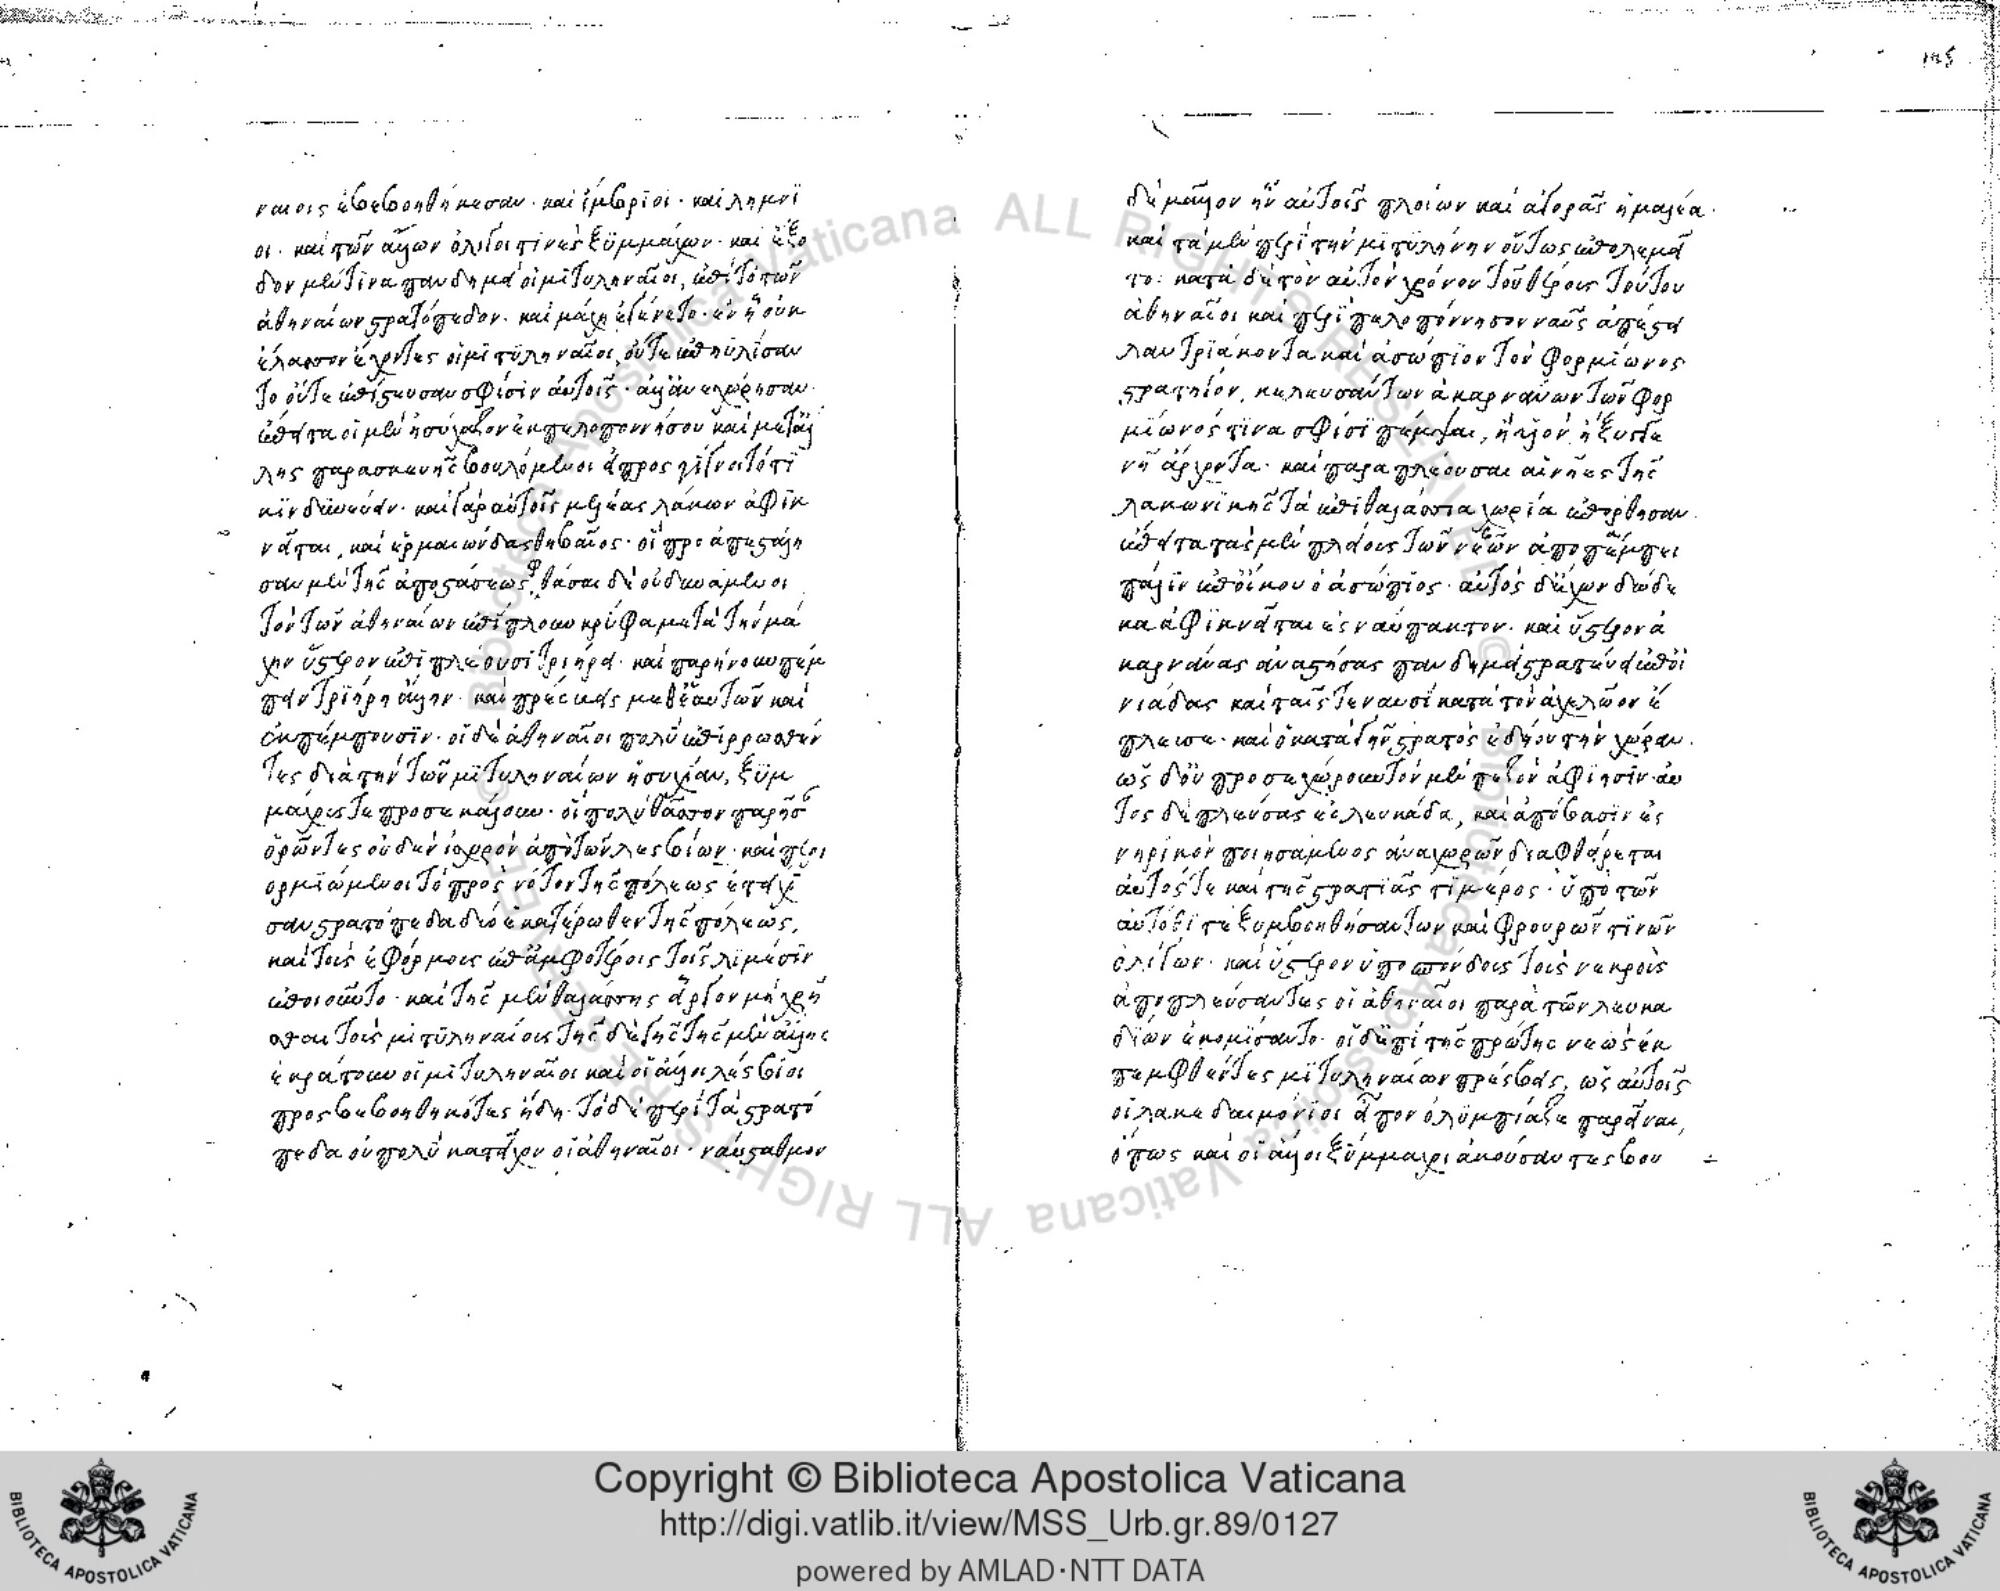 ναίοις ἐβεβοηθήκεσαν· καὶ ἴμβριοι· καὶ λήμνϊ
οι· καὶ τῶν ἄλλων ὀλίγοι τινὲς ξύμμάχων· καὶ ἔξο
δον μὲν τίνα πανδημεὶ οἱ μϊτυληναῖοι, ἐπὶ τὸ τῶν
ἀθηναίων στρατόπεδον· καὶ μάχη ἐγένετο· ἐν ῇ οὐκ
ἔλασσον ἔχοντες οἱ μϊτϋληναῖοι, οὔτε ἐπηυλίσαν
το οὔτε ἐπίστευσαν σφίσιν αὐτοῖς· ἀλλ' ἀνεχώρησαν·
ἔπειτα οἱ μὲν ἡσύχαζον ἐκ πελοποννήσου καὶ μετ' ἄλ
λης παρασκευῆς βουλόμενοι εἰ προς γένοιτό τϊ
κϊνδϋνεύειν· καὶ γὰρ αὐτοῖς μελέας λάκων ἀφϊκ
νεῖται, καὶ ἑρμαιώνδας θηβαῖος· οἳ προ ἀπεστάλη
σαν μὲν τῆς ἀποστάσεως, φθάσαι δὲ οὐ δυνάμενοι
τὸν τῶν ἀθηναίων ἐπίπλουν κρύφα μετὰ τὴν μά
χην ὕστερον ἐπιπλέουσι τριήρει· καὶ παρήνουν πέμ
πειν τρϊήρη ἄλλην· καὶ πρέσβεις μεθ' ἑαυτῶν καὶ
ἐκπέμπουσϊν· οἱ δὲ ἀθηναῖοι πολὺ ἐπιρρωσθέν
τες διὰ τὴν τῶν μϊτυληναίων ἡσυχίαν, ξϋμ
μάχους τε προσεκάλουν· οἳ πολὺ θᾶσσον παρῆσαν
ὁρῶντες οὐδὲν ἰσχυρὸν ἀπὸ τῶν λεσβίων· καὶ περι
ορμϊσάμενοι τὸ πρὸς νότον τῆς πόλεως ἐτείχϊ
σαν στρατόπεδα δύο ἑκατέρωθεν τῆς πόλεως,
καὶ τοὺς ἐφόρμους ἐπ' ἀμφοτέροις τοῖς λϊμέσϊν
ἐποιοῦντο· καὶ τῆς μὲν θαλάσσης εἶργον μὴ χρῆ
σθαι τοὺς μϊτϋληναίους τῆς δὲ γῆς τῆς μὲν ἄλλης
ἐκράτουν οἱ μϊτυληναῖοι καὶ οἱ ἄλλοι λέσβϊοι
προσβεβοηθηκότες ἤδη· τὸ δὲ περὶ τὰ στρατό
πεδα οὐ πολὺ κατεῖχον οἱ ἀθηναῖοι· ναύσταθμον
δὲ μᾶλλον ἦν αὐτοῖς πλοίων καὶ ἀγορᾶς ἡ μαλέα·
καὶ τὰ μὲν περὶ τὴν μϊτϋλήνην οὕτως ἐπολεμεῖ
το: κατὰ δὲ τὸν αὐτὸν χρόνον τοῦ θέρους τούτου
ἀθηναῖοι καὶ περὶ πελοπόννησον ναῦς ἀπέστει
λαν τρϊάκοντα καὶ ἀσώπϊον τὸν φορμίωνος
στρατηγόν, κελευσάντων ἀκαρνάνων τῶν φορ
μίωνός τϊνα σφίσϊ πέμψαι, ἢ υἱὸν ἢ ξυγγε
νῆ ἄρχοντα· καὶ παραπλέουσαι αἱ νῆες τῆς
λακωνϊκῆς τὰ ἐπιθαλάσσια χωρία ἐπόρθησαν·
ἔπειτα τὰς μὲν πλείους τῶν νεῶν ἀποπέμπει
πάλϊν ἐπ' οἴκου ὁ ἀσώπϊος· αὐτὸς δ' ἔχων δώδε
κα ἀφϊκνεῖται ἐς ναύπακτον· καὶ ὕστερον ἀ
καρνάνας ἀναστήσας πανδημεὶ στρατεύει ἐπ' οἰ
νιάδας καὶ ταῖς τε ναυσὶ κατὰ τὸν ἀχελῶον ἔ
πλευσε· καὶ ὁ κατὰ γῆν στρατὸς ἐδήου τὴν χώραν·
ὡς δ' οὐ προσεχώρουν τὸν μὲν πεζὸν ἀφίησϊν· αὐ
τὸς δὲ πλεύσας ἐς λευκάδα, καὶ ἀπόβασϊν ἐς
νήρϊκον ποιησάμενος ἀναχωρῶν διαφθείρεται
αὐτός τε καὶ τῆς στρατϊᾶς τϊ μέρος· ὑπὸ τῶν
αὐτόθϊ τε ξυμβοηθησάντων καὶ φρουρῶν τϊνῶν
ὀλίγων· καὶ ὕστερον ὑποσπόνδους τοὺς νεκροὺς
ἀποπλεύσαντες οἱ ἀθηναῖοι παρὰ τῶν λευκα
δίων ἐκομίσαντο· οἱ δ' ἐπὶ τῆς πρώτης νεὼς ἐκ
πεμφθέντες μϊτυληναίων πρέσβεις, ὡς αὐτοῖς
οἱ λακεδαιμόνϊοι εἶπον ὀλϋμπίαζε παρεῖναι,
ὅπως καὶ οἱ ἄλλοι ξύμμαχοι ἀκούσαντες βου
Copyright © Biblioteca Apostolica Vaticana
http://digi.vatlib.it/view/MSS_Urb.gr.89/0127
powered by AMLAD·NTT DATA